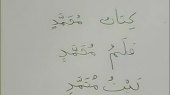 كِتَابُ مُحَمَّدٍ
قَلَمُ مُحَمَّدٍ
بَيْتُ مُحَمَّدٍ